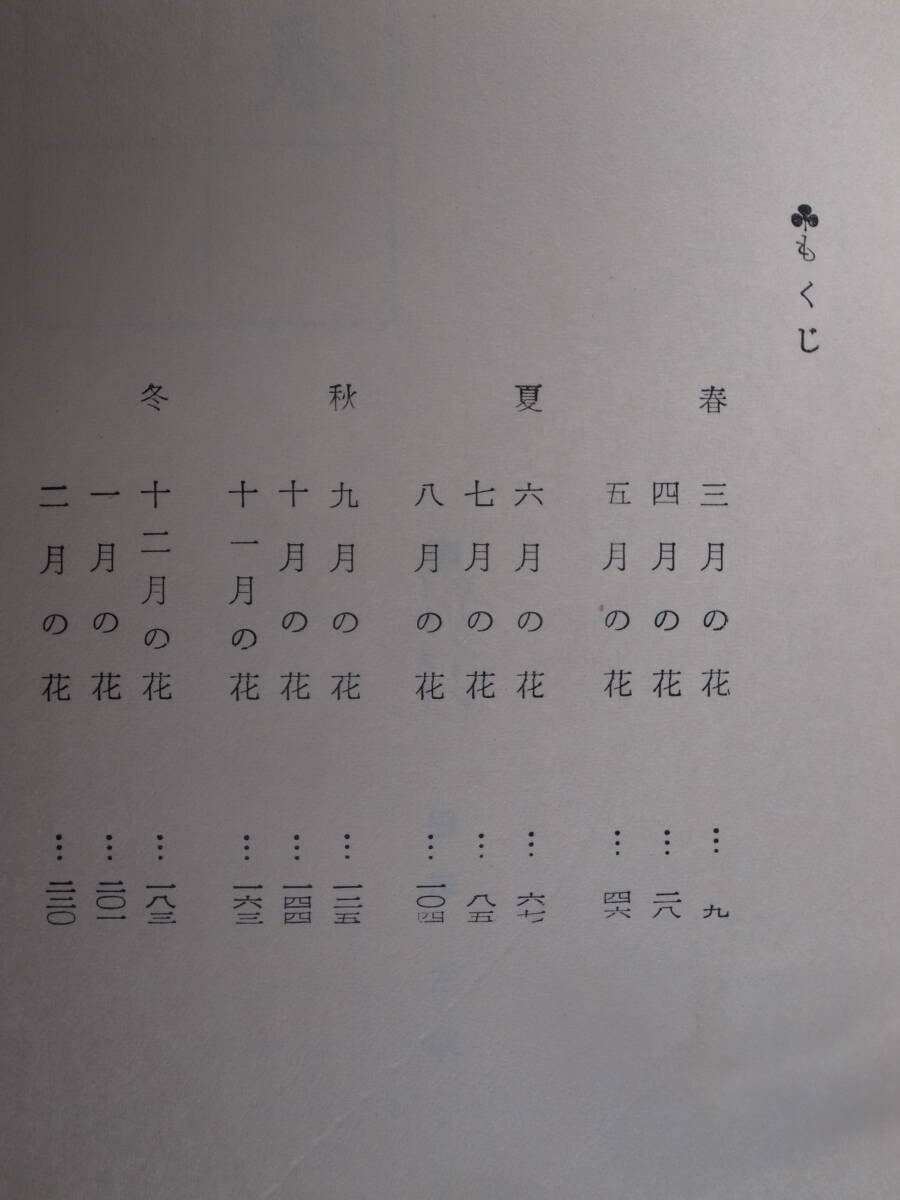 ♣もくじ
春
三月の花 … 九
四月の花 … 二八
五月の花 … 四六
夏
六月の花 … 六七
七月の花 … 八五
八月の花 … 一〇四
秋
九月の花 … 一二五
十月の花 … 一四四
十一月の花 … 一六三
冬
十二月の花 … 一八三
一月の花 … 二〇一
二月の花 … 二二〇